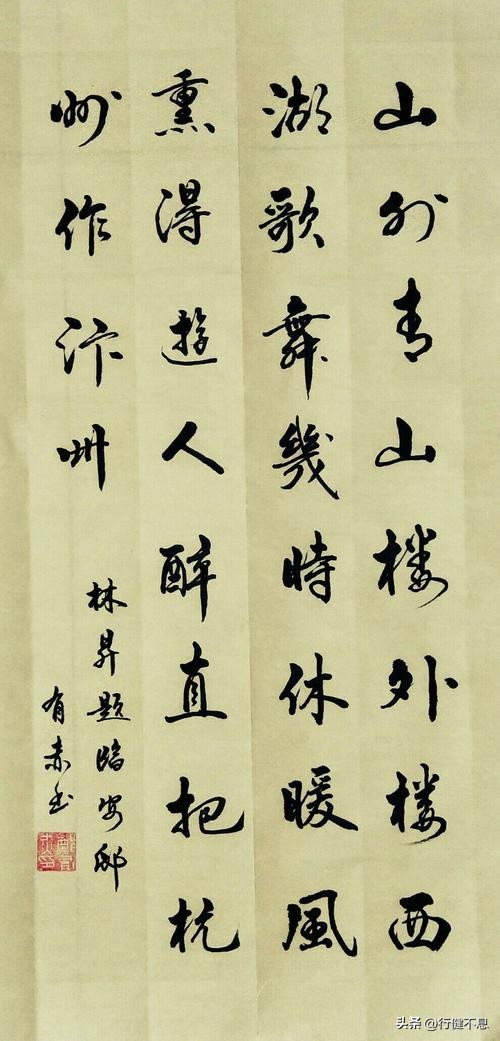 山外青山楼外楼西
湖歌舞幾時休暖風
熏得遊人醉直把杭
州作汴州
林昇題臨安邸
有赤书
头条 @行健不息